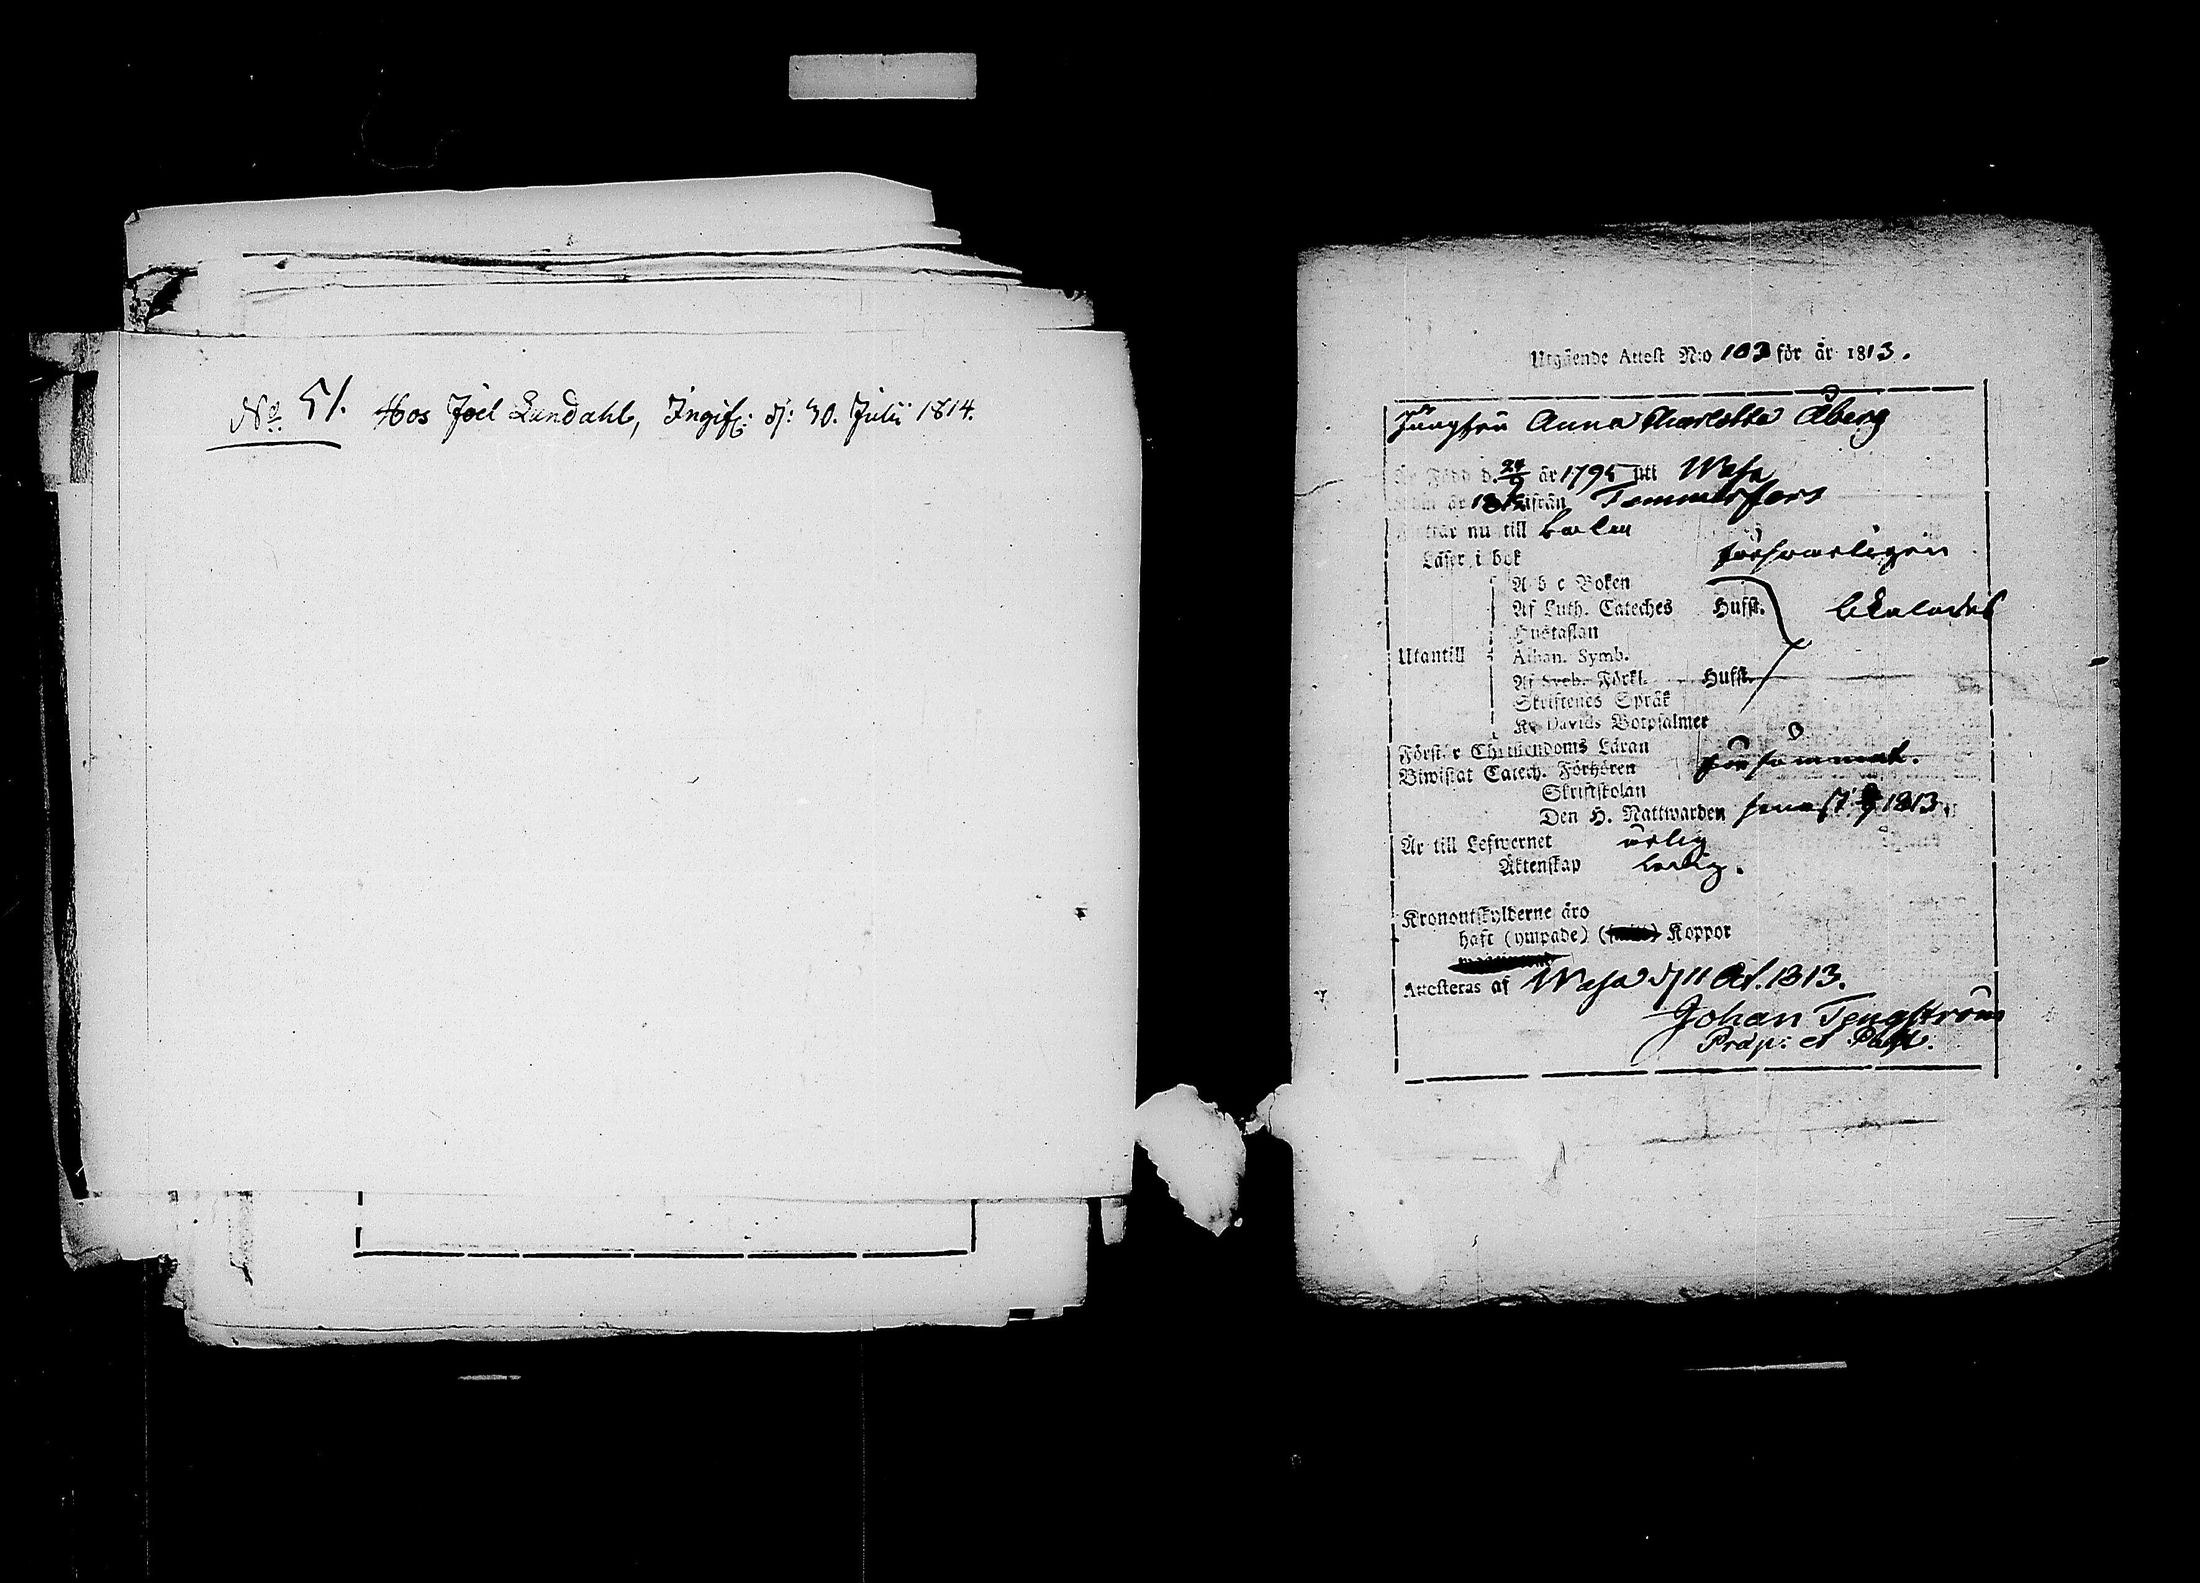 No 51. Hos Joel Lundahl, Ingif: d: 30. Julii 1814.
Utgående Attest N:o 103 för år 1813.
Jungfru Anna Charlotta Åberg
Är Född d. 24/9 år 1795 uti Wasa
år 1812 ifrån Tammerfors
nu till
Läser i bok försvarligen
A b c Boken
Af Luth. Cateches Hufst.
Hustaflan
Utantill Athan. Symb.
Af Sveb. Förkl. Hufst.
Skriftenes Språk
K. Davids Botpsalmer
Förstår Christendoms Läran
Biwistat Catech. Förhören försummat.
Skriftskolan
Den H. Nattwarden senast 1813
Är till Lefwernet ärlig
Äktenskap ledig.
Kronoutskylderne äro
haft (ympade) Koppor
Attesteras af Wasa d 11 Oct. 1813.
Johan Tengström
Præp: et Past.